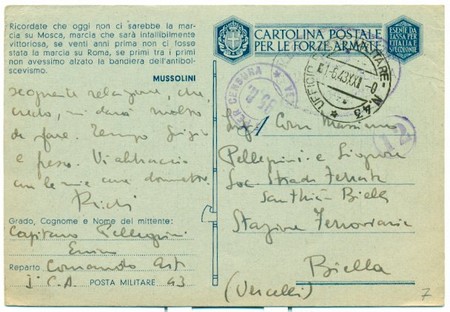 Ricordate che oggi non ci sarebbe la mar-
cia su Mosca, marcia che sarà infallibilmente
vittoriosa, se venti anni prima non ci fosse
stata la marcia su Roma, se primi tra i primi
non avessimo alzato la bandiera dell'antibol-
scevismo.
MUSSOLINI
relazione, che,
credo, mi darà molto
da fare. Tempo grigio
e fesso. Vi abbraccio
con le mie
Grado, Cognome e Nome del mittente:
Capitano Pellegrini
Reparto Comando Art
I° C.A. POSTA MILITARE 43
CARTOLINA POSTALE
PER LE FORZE ARMATE
ESENTE DA
TASSA PER
L'ITALIA E
PER CENSURA
N. 43
12
Pellegrini e Signora
Soc Strade Ferrate
Santhià Biella
Stazione Ferroviaria
Biella
(Vercelli)
7